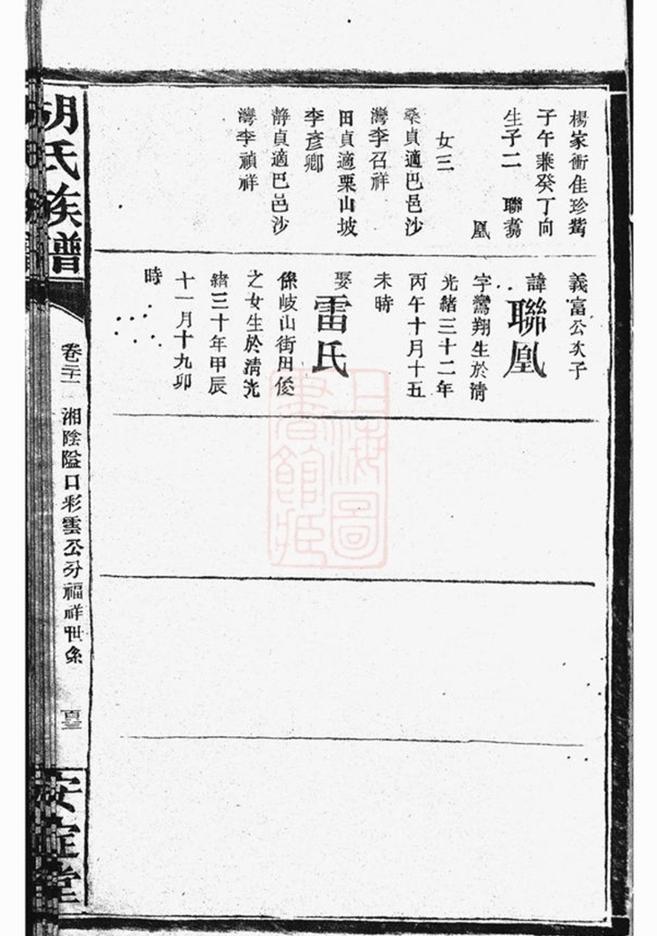 楊家衝佳珍塋
子午兼癸丁向
生子二　聯翥
凰
女三
桑貞適巴邑沙
灣李召祥
田貞適栗山坡
李彥卿
靜貞適巴邑沙
灣李禎祥
義富公次子
諱聯凰
字鸞翔生於清
光緒三十二年
丙午十月十五
未時
娶雷氏
係岐山街田俊
之女生於清光
緒三十年甲辰
十一月十九卯
時
胡氏族譜
湘陰隘口彩雲公分福祥世系
安定堂
上海圖
書館藏